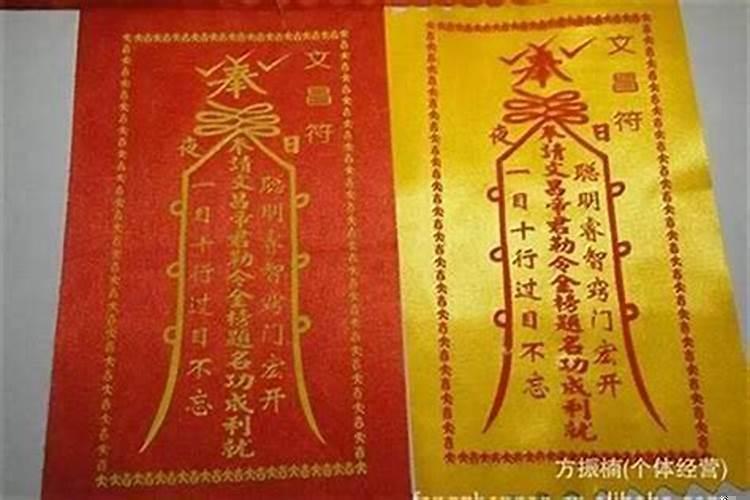 文昌符
奉
日
夜
聪明睿智窍门宏开
奉請文昌帝君勅令金榜題名功成利就
一目十行过目不忘
文昌符
奉
日
夜
聪明睿智窍门宏开
奉請文昌帝君勅令金榜題名功成利就
一目十行过目不忘
方振楠(个体经营)